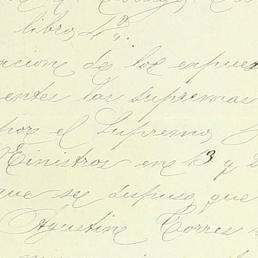 libro, L.º.
acione de los expue
entes las supremas
por el Supremo
Ministros en 13 y 2
que se dispuso que
Agustin Torres